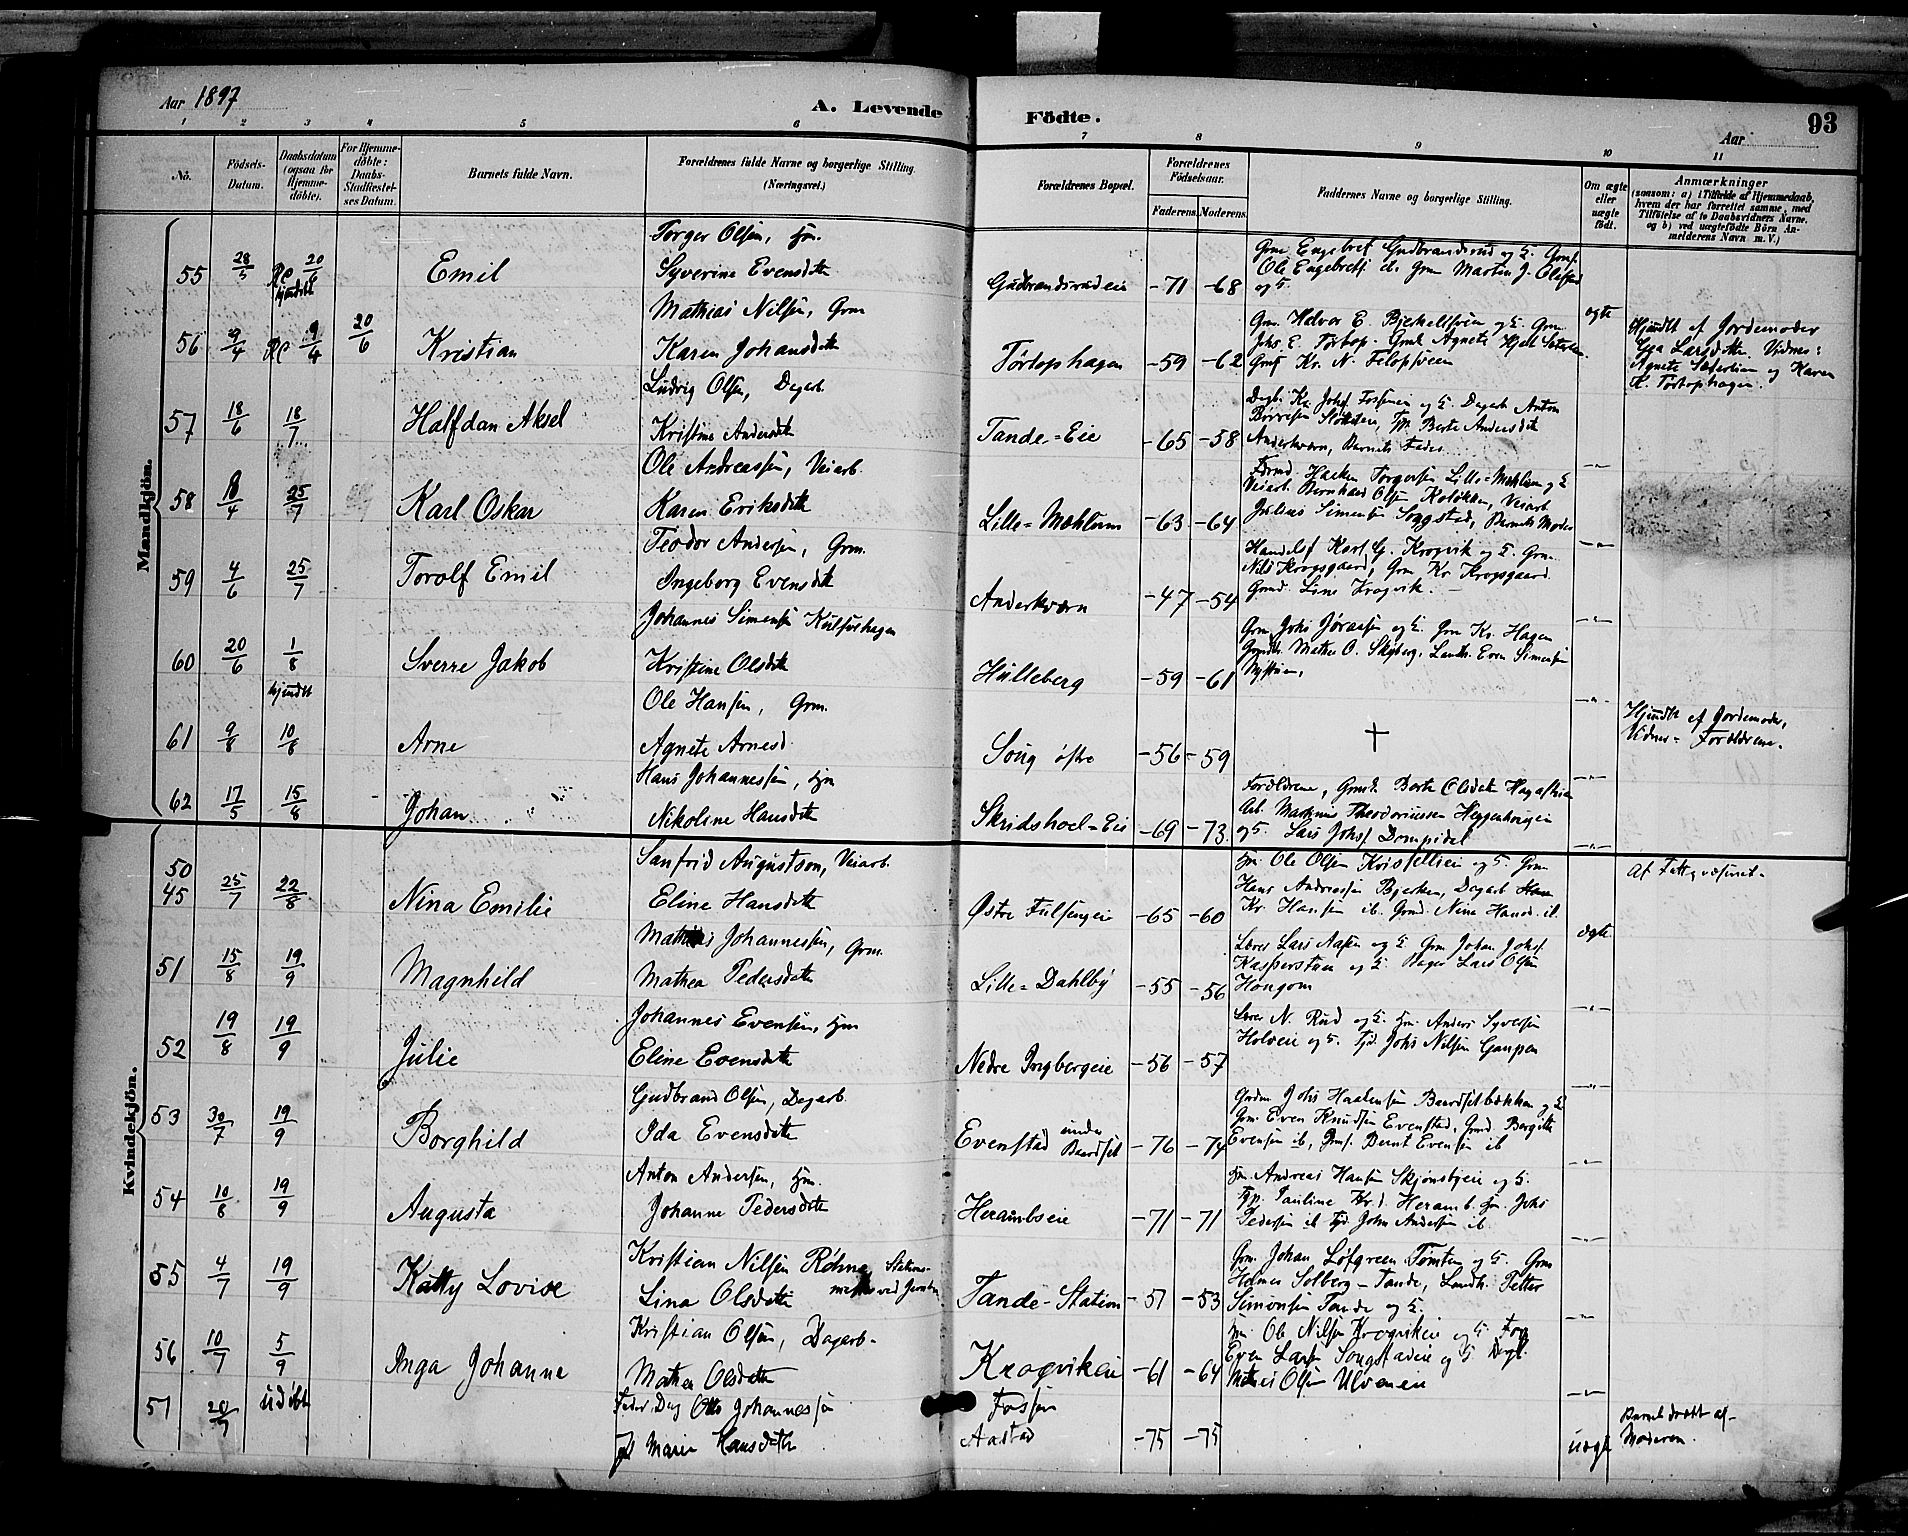 Aar 1897
A. Levende
Födte.
Aar
93
1 2 3 4 5 6 7 8 9 10 11
No.
Födsels-Datum.
Daabsdatum (ogsaa for Hjemme-döbte).
For Hjemme-döbte: Daabs-Stadfæstel-ses Datum.
Barnets fulde Navn.
Forældrenes fulde Navne og borgerlige Stilling. (Næringsvei.)
Forældrenes Bopæl.
Forældrenes Födselsaar.
Faderens. Moderens.
Faddernes Navne og borgerlige Stilling.
Om ægte eller uægte födt.
Anmærkninger
(saasom: a) i Tilfælde af Hjemmedaab, hvem der har forrettet samme, med Tilföielse af to Daabsvidners Navne, og b) ved uægtefödte Börn An-melderens Navn m. V.)
Mandkjön.
55 28/5 20/6 Emil
Torger Olsen, hm.
Syverine Evensdtr
Gudbrandsrudeie -71 -68
Grm Engebret Gudbrandsrud og
Ole Engebrets. ib. Grm Martin J.
ægte
56 9/4 hjmdbt 9/4 20/6 Kristian
Mathias Nilsen, Grm
Karen Johansdtr
Törtophagen -59 -62
Grm. Halvor E.
Johs E. Törtop.
Kr. N.
Hjmdbt af Jordemoder
Larsdtr. Vidner:
Agnete Sæterlien og Karen
K. Törtophagen.
57 18/6 18/7 Halfdan Aksel
Ludvig Olsen, Dagarb.
Kristine Andersdtr
Tande=Eie -65 -58
Dagb. Kr. Johs. Fossen og Dagarb Anton
Berte Andersdtr
Anderkværn, Barnets Fader
58 8/4 25/7 Karl Oskar
Ole Andreassen, Veiarb.
Karen Eriksdtr
Lille=Mæhlum -63 -64
Haaken Torgersen Lille=Mæhlum og
Veiarb. Bernhard Olsen Veiarb
Julius Simensen Songstad, Barnets Moder
59 4/6 25/7 Torolf Emil
Teodor Andersen, Grm.
Ingeborg Evensdtr
Anderkværn -47 -54
Handelsf Karl G. Krogvik og Grm.
Nils Krogsgaard, Grm Kr. Krogsgaard.
Grmd. Line Krogvik.
60 20/6 1/8 Sverre Jakob
Johannes Simensen
Kristine Olsdtr
Hulleberg -59 -61
Grm Johs Jörassen og Grm Kr. Hagen
Mathea O. Skyberg, Landh. Even Simensen
61 9/8 hjmdbt 10/8 Arne
Ole Hansen, Grm.
Agnete Arnesd.
Song östre -56 -59
+
Hjmdbt af Jordemoder,
Vidner= Forældrene.
62 17/5 15/8 Johan
Hans Johannessen, hm
Nikoline Hansdtr
Skridshoel=Eie -69 -73.
Forældrene, Berte Olsdatter
Arb. Martinus Theodoriussen
og Lars Johs.
Kvindekjön.
50
45 25/7 22/8 Nina Emilie
Sanfrid Augustson, Veiarb.
Eline Hansdtr
Östre Fulsengeie -65 -60
hm. Ole Olsen og Grm.
Hans Andreassen Bjerken, Dagarb
Kr. Hansen ib. Nina Hansd. ib.
ægte
Af Fattigvæsenet.
51 15/8 19/9 Magnhild
Mathias Johannessen, Grm.
Mathea Pedersdtr
Lille=Dahlby -55 -56
Lærer Lars Aasen og Grm Johan Johs.
Kasperstuen og Bager Lars Olsen
Hougom
52 19/8 19/9 Julie
Johannes Evensen, hm
Eline Evensdtr
Nedre Ingbergeie -56 -57
Lærer N. Rud og hm. Anders Syversen
Holveie og Johs Nilsen Gaupen
53 30/7 19/9 Borghild
Gudbrand Olsen, Dagarb.
Ida Evensdtr
Evenstad under Baardset -76 -74
Johs Haakensen Baardsetbækken og
Grm Even Knudsen Evenstad, Grmd. Bergitte
Evensen ib, Bernt Evensen ib
54 10/8 19/9 Augusta
Anton Andersen, hm.
Johanne Pedersdtr
Herambseie -71 -71
hm. Andreas Hansen Skjönsbyeie og
Pauline Kr.d. Heramb. hm. Johs
Pedersen ib John Andersen ib.
55 4/7 19/9 Katty Lovise
Kristian Nilsen Röhne Stations-
mester ved Jernbn
Lina Olsdatter
Tande-Station -51 -53
Grm. Johan Löfgreen Tömten og Grm
Helmer Solberg - Tande, Landh. Petter
Simonsen Tande og
56 10/7 5/9 Inga Johanne
Kristian Olsen, Dagarb.
Mathea Olsdtr
Krogvikeie -61 -64
hm. Ole Nilsen Krogvikeie og
Even Larsen Songstadeie og
Olsen Ulveneie
57 20/7 udöbt
Fader Dag Otto Johannessen
Marie Hansdatter
Fossen
Aastad -75 -75
uægte
Barnet dræbt af
Moderen.